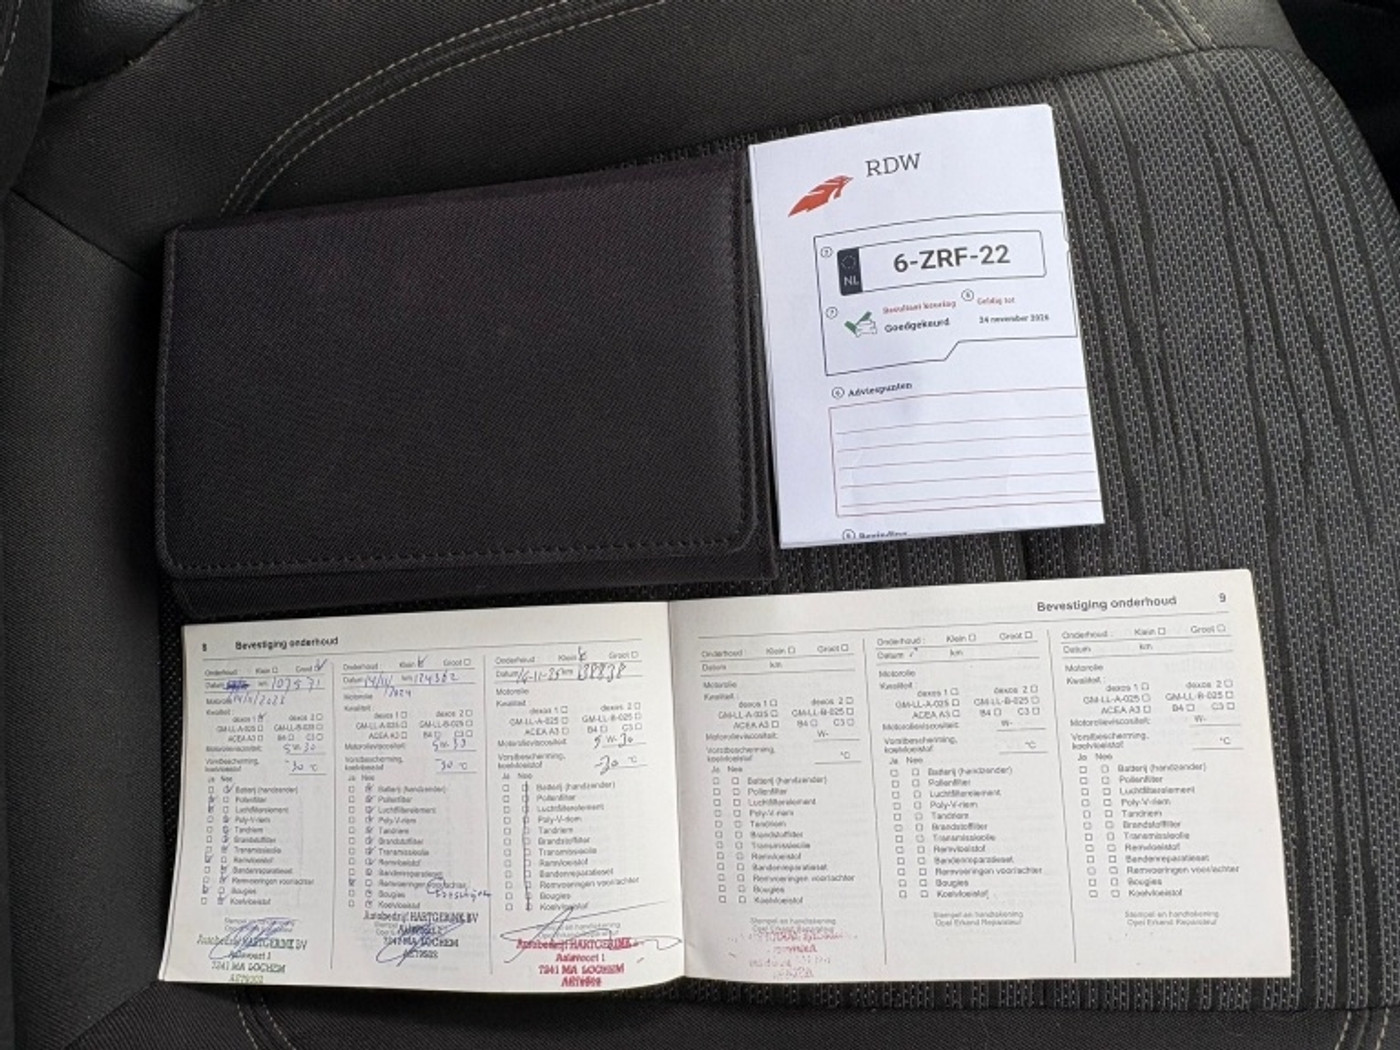 RDW
NL
6-ZRF-22
7 Resultaat keuring 8 Geldig tot
Goedgekeurd 24 november 2026
Adviespunten
8 Bevestiging onderhoud
Onderhoud : Klein Groot
Datum km 107571
Motorolie
Kwaliteit :
dexos 1 dexos 2
GM-LL-A-025 GM-LL-B-025
ACEA A3 B4 C3
Motorolieviscositeit: 5W-30
Vorstbescherming,
koelvloeistof -30 °C
Ja Nee
Batterij (handzender)
Pollenfilter
Luchtfilterelement
Poly-V-riem
Tandriem
Brandstoffilter
Transmissieolie
Remvloeistof
Bandenreparatieset
Remvoeringen voor/achter
Bougies
Koelvloeistof
Autobedrijf HARTGERINK BV
Aalsvoort 1
7241 MA LOCHEM
Onderhoud : Klein Groot
Datum 14/11/2024 km 124382
Motorolie
Kwaliteit :
dexos 1 dexos 2
GM-LL-A-025 GM-LL-B-025
ACEA A3 B4 C3
Motorolieviscositeit: 5W-30
Vorstbescherming,
koelvloeistof -30 °C
Ja Nee
Batterij (handzender)
Pollenfilter
Luchtfilterelement
Poly-V-riem
Tandriem
Brandstoffilter
Transmissieolie
Remvloeistof
Bandenreparatieset
Remvoeringen voor/achter
Bougies
Koelvloeistof
Autobedrijf HARTGERINK BV
Aalsvoort 1
7241 MA LOCHEM
Onderhoud : Klein Groot
Datum 14-11-25 km 138838
Motorolie
Kwaliteit :
dexos 1 dexos 2
GM-LL-A-025 GM-LL-B-025
ACEA A3 B4 C3
Motorolieviscositeit: 5W-30
Vorstbescherming,
koelvloeistof -30 °C
Ja Nee
Batterij (handzender)
Pollenfilter
Luchtfilterelement
Poly-V-riem
Tandriem
Brandstoffilter
Transmissieolie
Remvloeistof
Bandenreparatieset
Remvoeringen voor/achter
Bougies
Koelvloeistof
Autobedrijf HARTGERINK
Aalsvoort 1
7241 MA LOCHEM
Bevestiging onderhoud 9
Onderhoud : Klein Groot
Datum km
Motorolie
Kwaliteit :
dexos 1 dexos 2
GM-LL-A-025 GM-LL-B-025
ACEA A3 B4 C3
Motorolieviscositeit: W-
Vorstbescherming,
koelvloeistof °C
Ja Nee
Batterij (handzender)
Pollenfilter
Luchtfilterelement
Poly-V-riem
Tandriem
Brandstoffilter
Transmissieolie
Remvloeistof
Bandenreparatieset
Remvoeringen voor/achter
Bougies
Koelvloeistof
Stempel en handtekening
Opel Erkend Reparateur
Onderhoud : Klein Groot
Datum km
Motorolie
Kwaliteit :
dexos 1 dexos 2
GM-LL-A-025 GM-LL-B-025
ACEA A3 B4 C3
Motorolieviscositeit: W-
Vorstbescherming,
koelvloeistof °C
Ja Nee
Batterij (handzender)
Pollenfilter
Luchtfilterelement
Poly-V-riem
Tandriem
Brandstoffilter
Transmissieolie
Remvloeistof
Bandenreparatieset
Remvoeringen voor/achter
Bougies
Koelvloeistof
Stempel en handtekening
Opel Erkend Reparateur
Onderhoud : Klein Groot
Datum km
Motorolie
Kwaliteit :
dexos 1 dexos 2
GM-LL-A-025 GM-LL-B-025
ACEA A3 B4 C3
Motorolieviscositeit: W-
Vorstbescherming,
koelvloeistof °C
Ja Nee
Batterij (handzender)
Pollenfilter
Luchtfilterelement
Poly-V-riem
Tandriem
Brandstoffilter
Transmissieolie
Remvloeistof
Bandenreparatieset
Remvoeringen voor/achter
Bougies
Koelvloeistof
Stempel en handtekening
Opel Erkend Reparateur